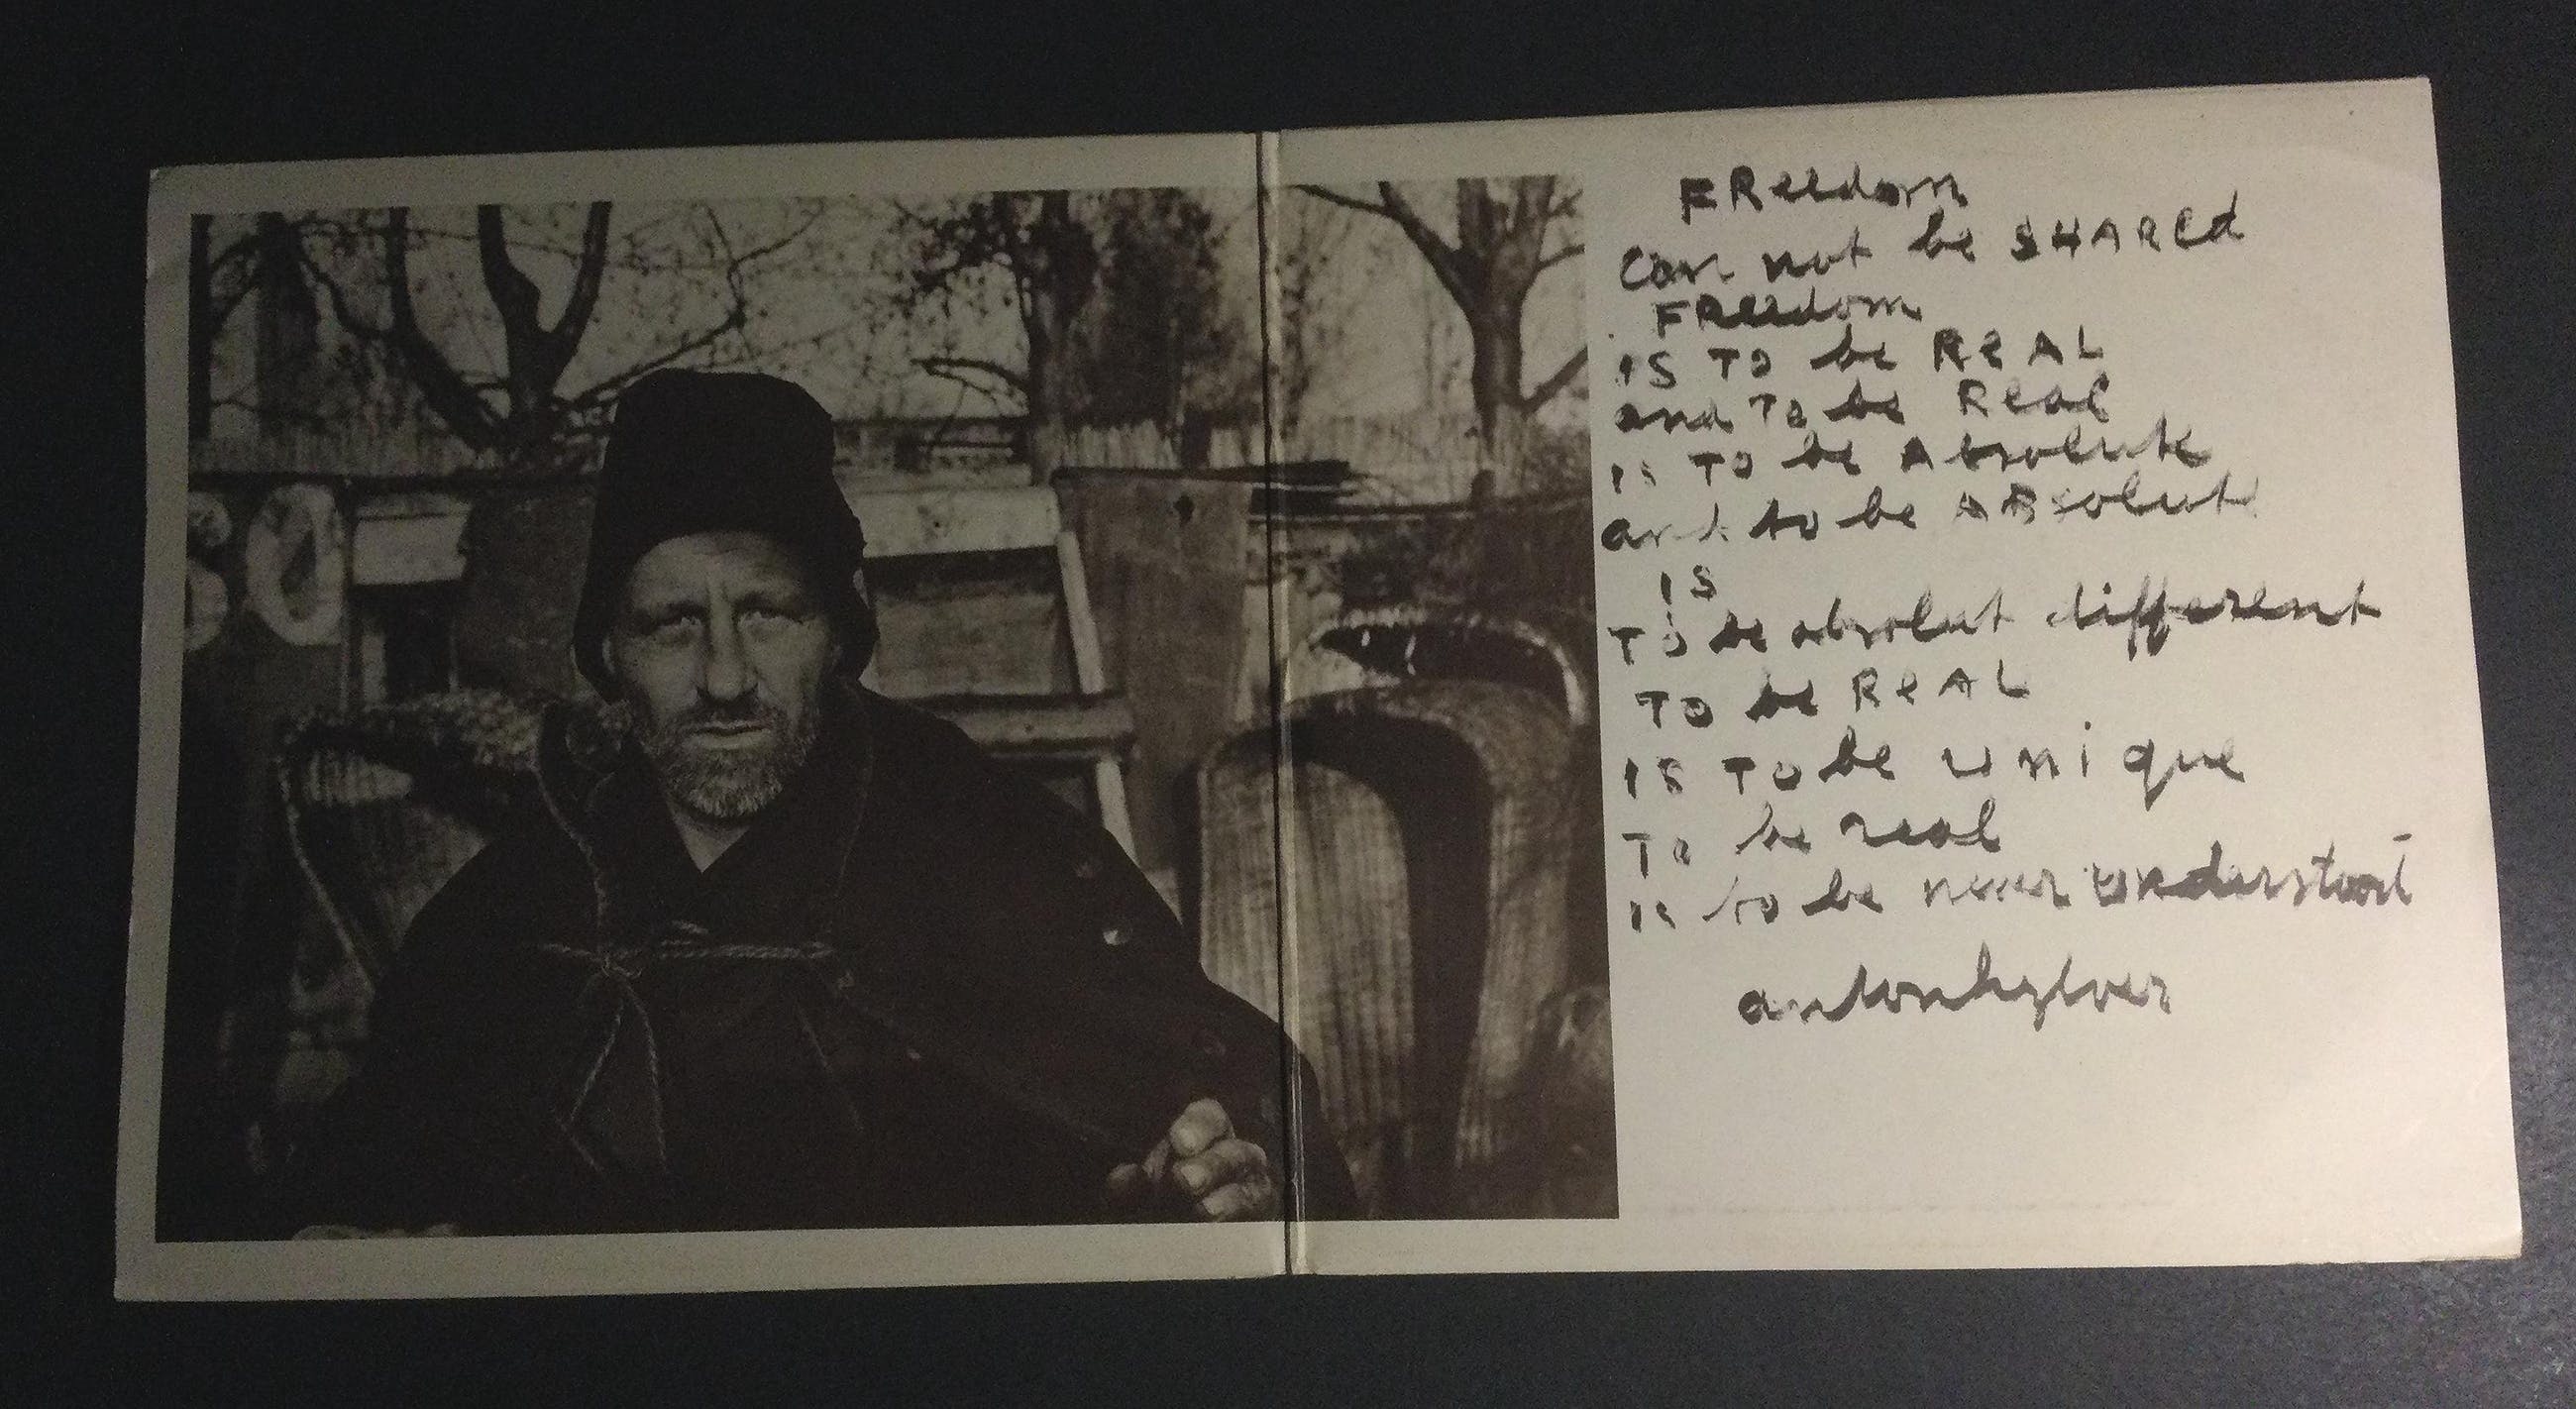 FReedom
Can not be SHAREd
FReedom
IS TO be ReAL
and To be Real
is TO be Absolute
and to be ABsolut
IS
To be absolut different
TO be ReAL
IS TO be unique
To be real
is to be never understood